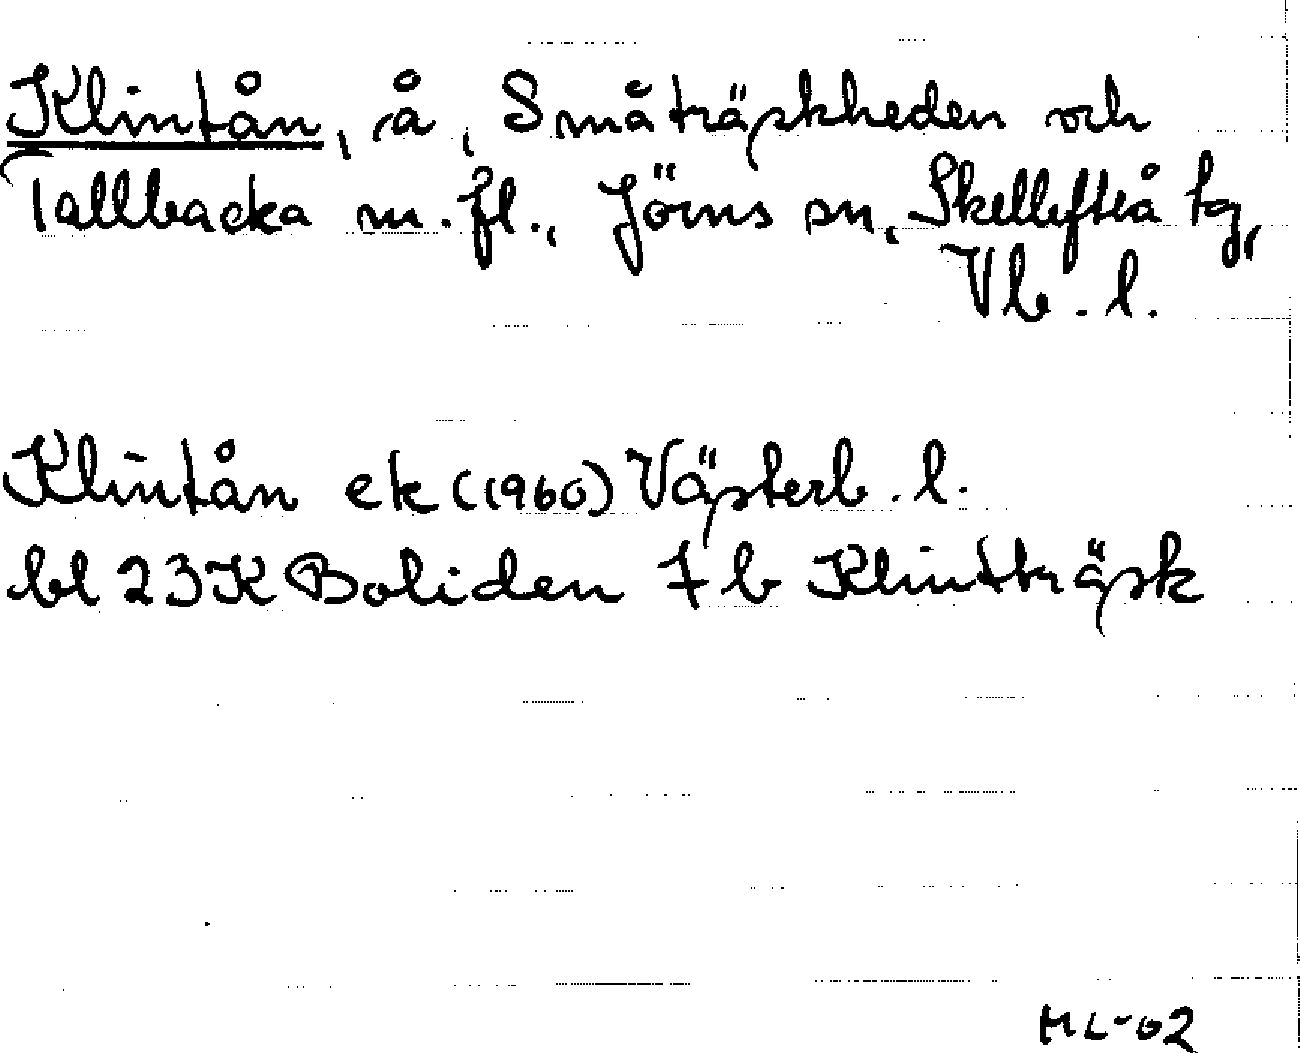 Klintån, å, Småträskheden och
Tallbacka m.fl., Jörns sn, Skellefteå tg,
Vb. l.
Klintån ek (1960) Västerb. l.
bl 23K Boliden 7b Klintträsk
ML-02